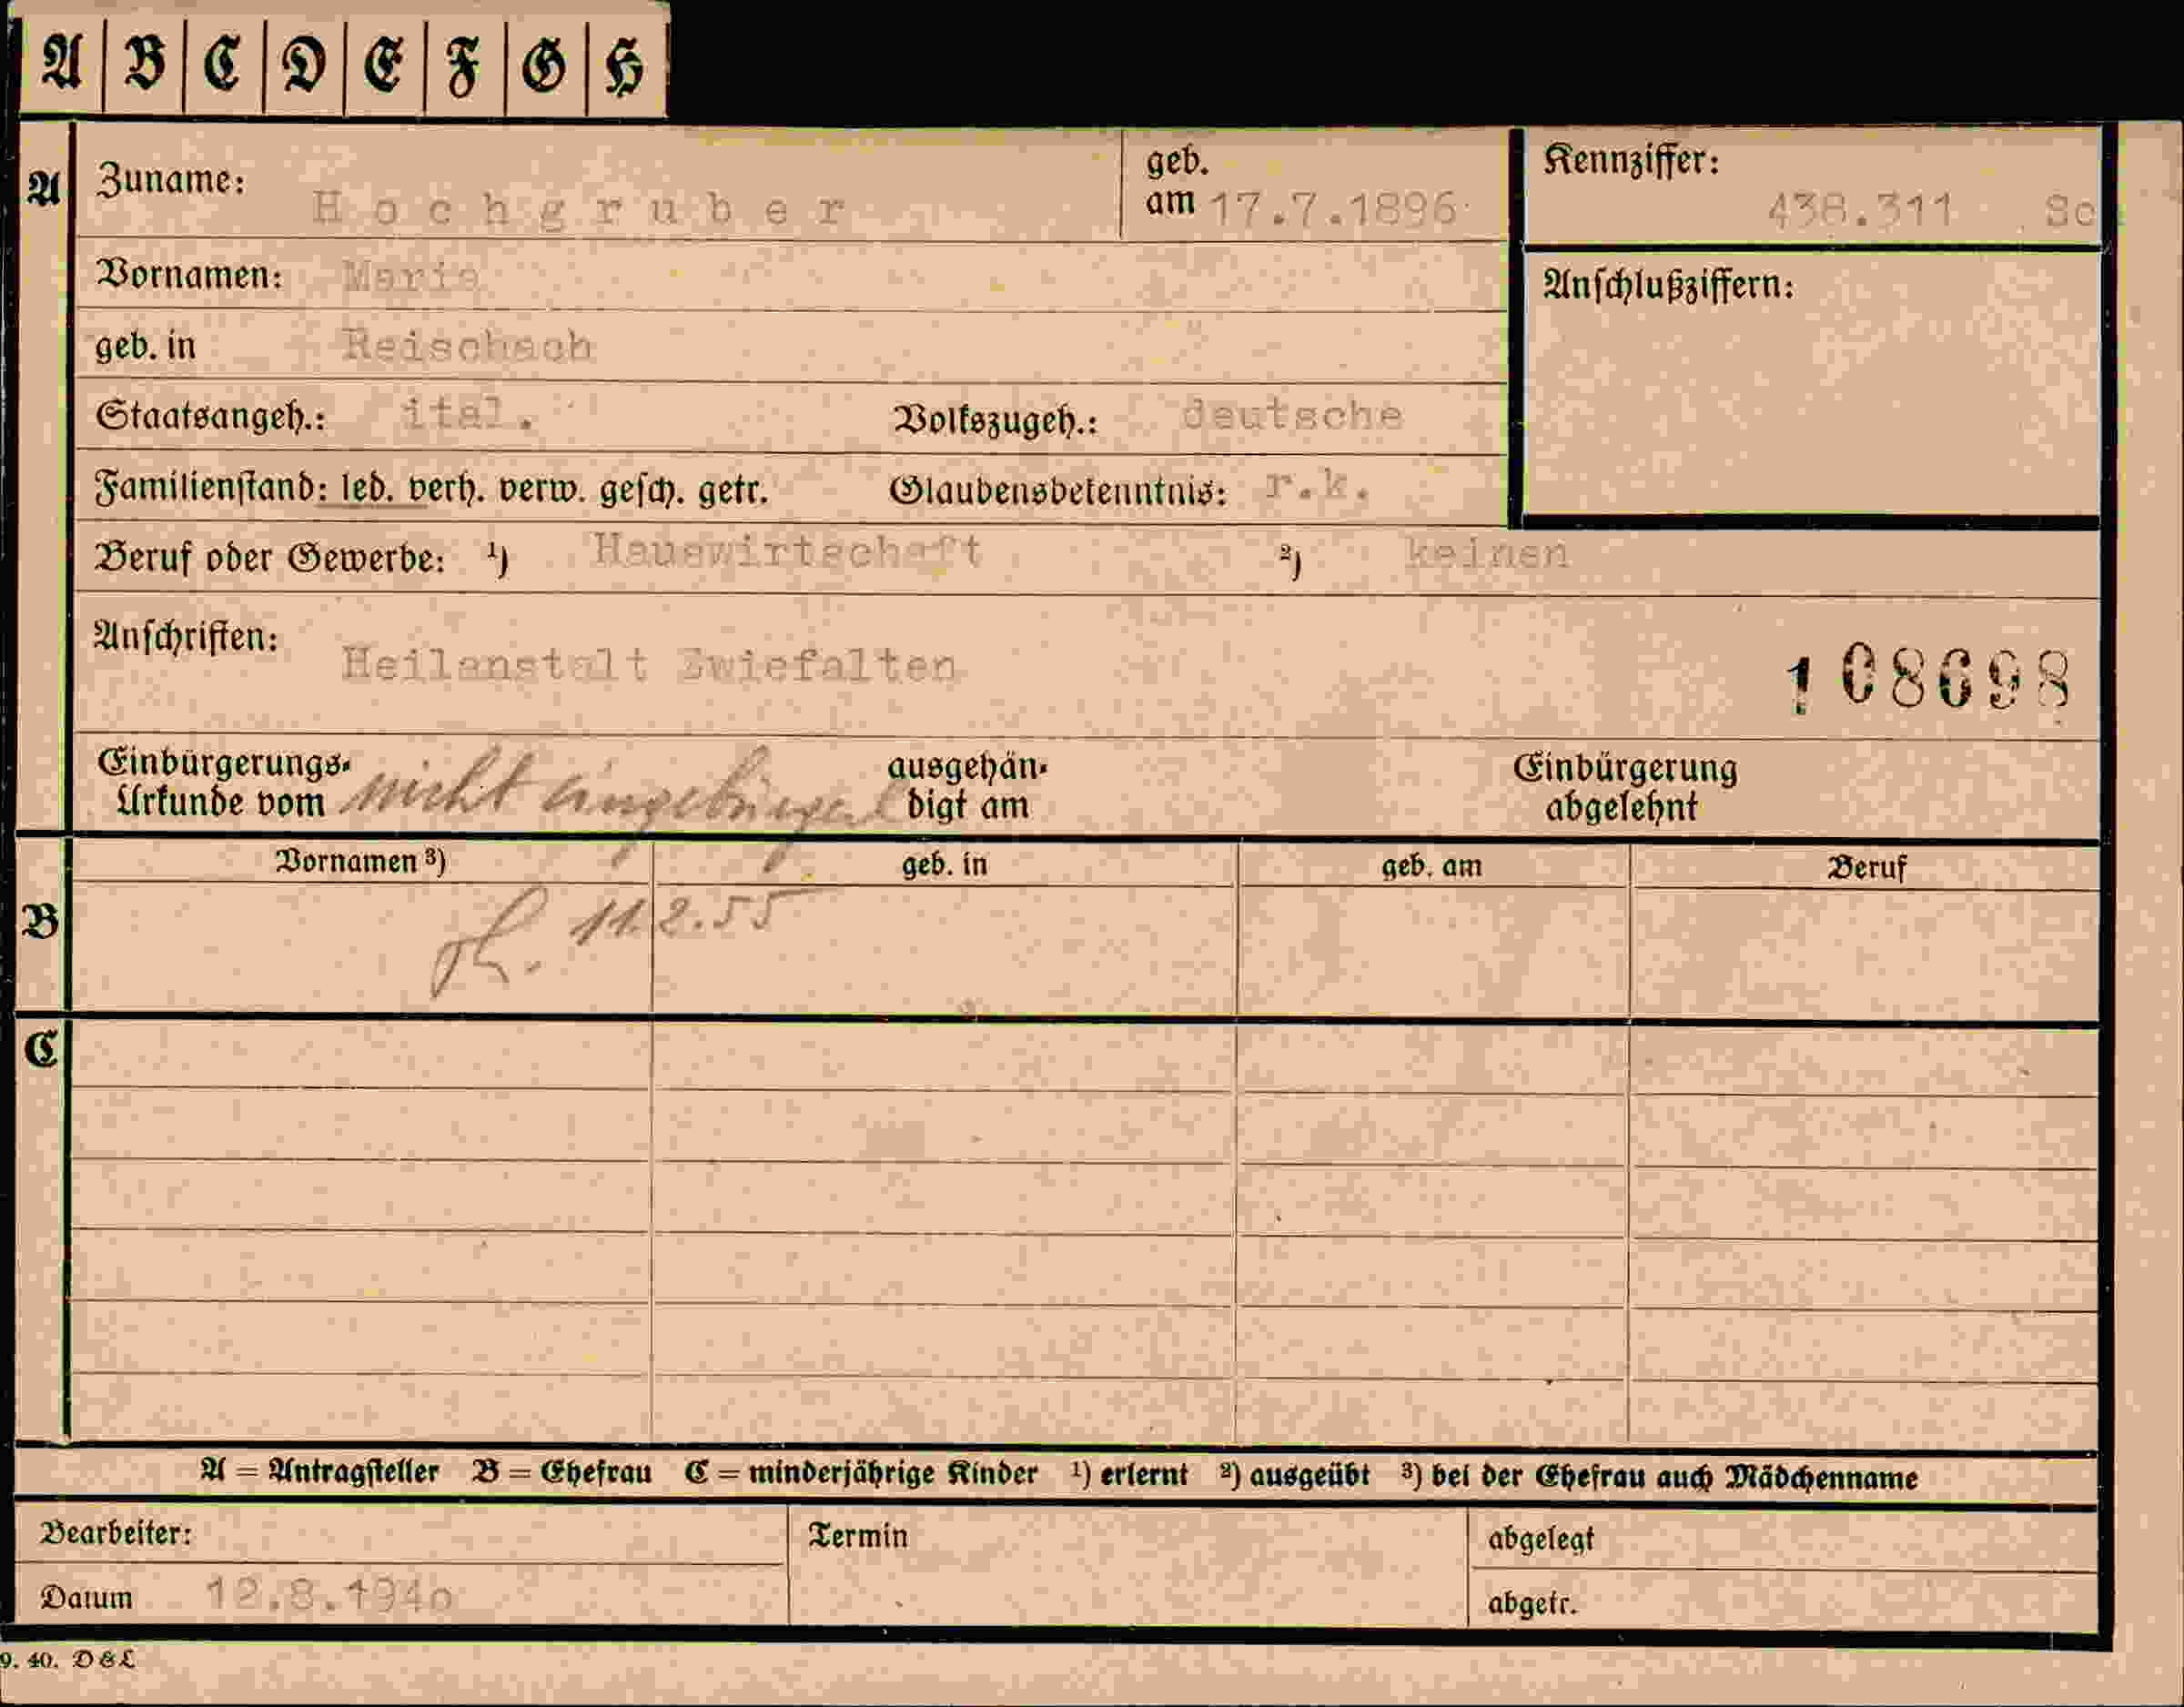 A B C D E F G H
A Zuname: Hochgruber geb. am 17.7.1896 Kennziffer: 438.311 Sc
Vornamen: Maria Anschlußziffern:
geb. in Reischach
Staatsangeh.: ital. Volkszugeh.: deutsche
Familienstand: led. verh. verw. gesch. getr. Glaubensbekenntnis: r.k.
Beruf oder Gewerbe: ¹) Hauswirtschaft ²) keinen
Anschriften: Heilanstalt Zwiefalten 108698
Einbürgerungs- ausgehän- Einbürgerung
Urkunde vom nicht eingebürgert digt am abgelehnt
Vornamen ³) geb. in geb. am Beruf
B 11.2.55
C
A = Antragsteller B = Ehefrau C = minderjährige Kinder ¹) erlernt ²) ausgeübt ³) bei der Ehefrau auch Mädchenname
Bearbeiter: Termin abgelegt
Datum 12.8.1940 abgetr.
9. 40. D&L